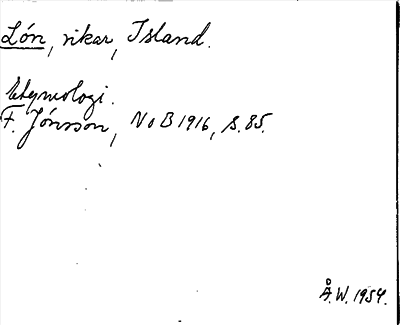 Lón, vikar, Island.
Etymologi.
F. Jónsson, NoB 1916, s. 85.
Å.W. 1954.